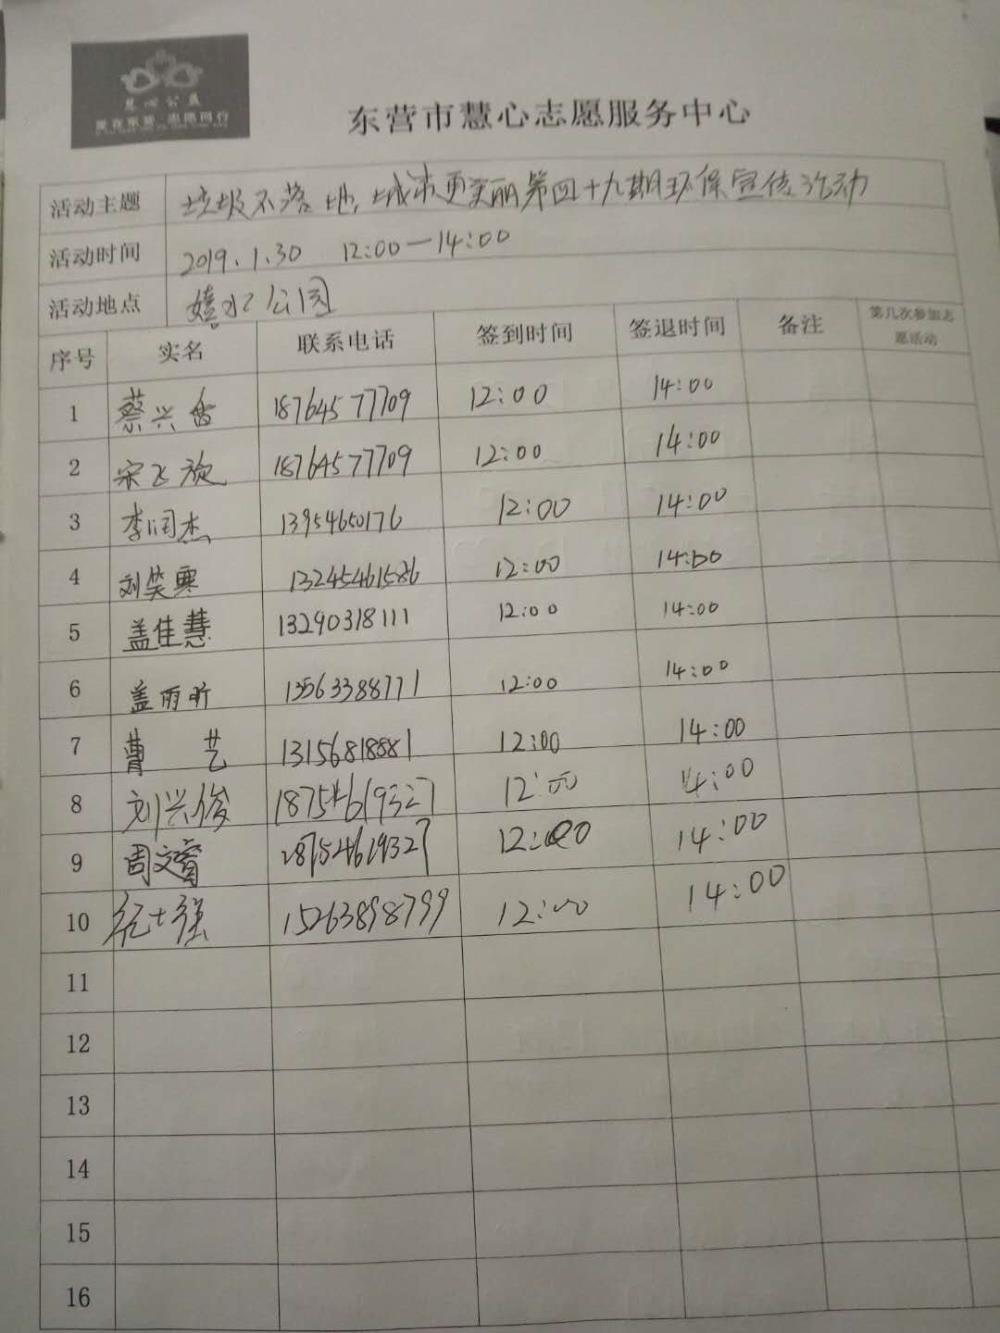 慧心公益
东营市慧心志愿服务中心
活动主题 垃圾不落地,城市更美丽第四十九期环保宣传活动
活动时间 2019.1.30 12:00-14:00
活动地点 嬉水公园
序号 实名 联系电话 签到时间 签退时间 备注 第几次参加志愿活动
1 蔡兴香 18764577709 12:00 14:00
2 宋飞旋 18764577709 12:00 14:00
3 李闰杰 13954650176 12:00 14:00
4 刘笑寒 13245461586 12:00 14:00
5 盖佳慧 13290318111 12:00 14:00
6 盖雨昕 13563388771 12:00 14:00
7 曹艺 13156818881 12:00 14:00
8 刘兴俊 18754619327 12:00 14:00
9 周文睿 18754619327 12:00 14:00
10 纪士强 15263898799 12:00 14:00
11
12
13
14
15
16